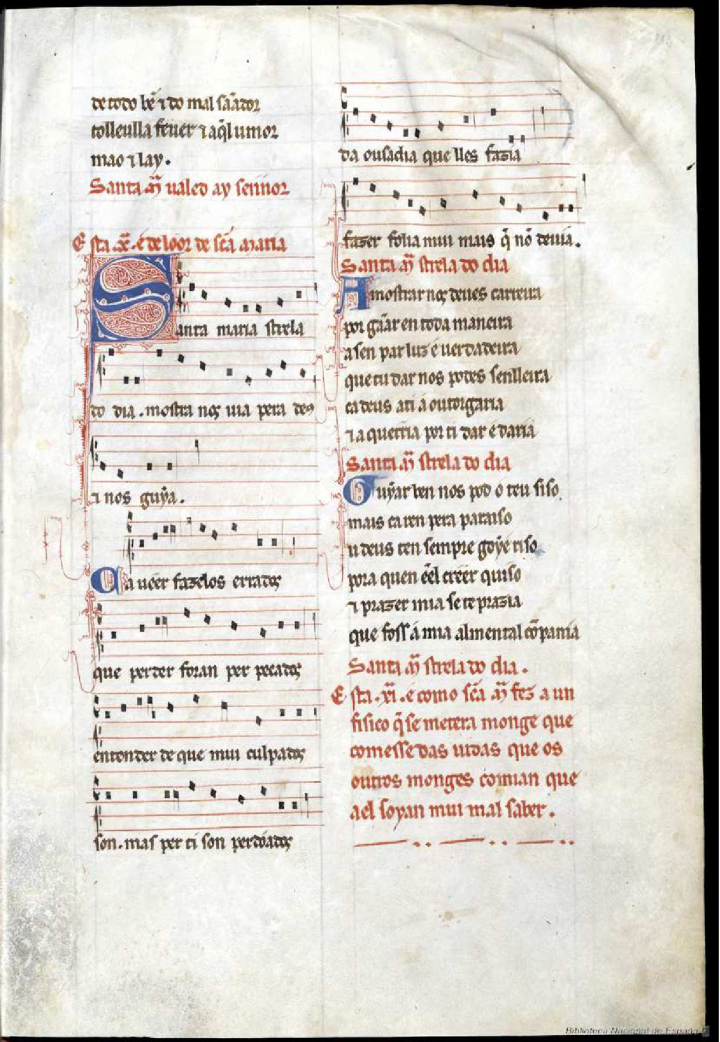 de todo bẽ ⁊ do mal sãador
tolleulla feuer ⁊ aq̃l umor
mao ⁊ lay.
Santa m̃ ualed ay sennor
Esta .xẽ. é de loor de scã maria
Santa maria strela
do dia . mostra nos uia pera deus
⁊ nos guÿa.
Ca uéér fazelos errados
que perder foran per pecados
entender de que mui culpados
son. mas per ti son perdõados
da ousadia que lles fazia
fazer folia mui mais q̃ nõ deuia.
Santa m̃ strela do dia
Amostrar nos deues carreira
por gãar en toda maneira
a sen par luz é uerdadeira
que tu dar nos podes senlleira
ca deus a ti a outorgaria
⁊ a querria por ti dar é daria
Santa m̃ strela do dia
Guÿar ben nos pod o teu siso
mais ca ren pera parayso
u deus ten sempre goye riso
pora quen éel créér quiso
⁊ prazer mia se te prazia
que foss á mia alm en tal cõpania
Santa m̃ strela do dia .
Esta .xi. é como scã m̃ fez a un
fisico q̃ se metera monge que
comesse das uidas que os
outros monges comian que
a el soyan mui mal saber .
Biblioteca Nacional de España